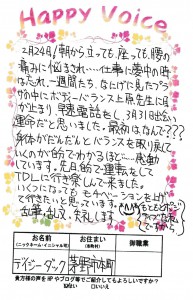 Happy Voice
2月24日/朝から立っても座っても、腰の
痛みに悩まされ…仕事に夢中の時
なんだ、一週間たち、なにげに見たブラウ
か中にボディーバランス上原先生に目
が止まり早速電話をし、3月31日出会い
運命だと思いました。最初はなんで???
身体がだんだんとバランスを取り戻して
いくのが自分でわかるほど…感動
しています。先日自分で運転をして
TDLに行き楽しんで来ました。
いくつになっても、モチベーションを上げ
て行きたいと思っています。
乱筆、乱文、失礼します。
お名前
(ニックネーム・イニシャル可)
お住まい
(市町村)
御職業
デイジーダック
茅野市本町
貴方様の声をHPやブログ等でご紹介してもよろしいですか?
☑はい □いいえ